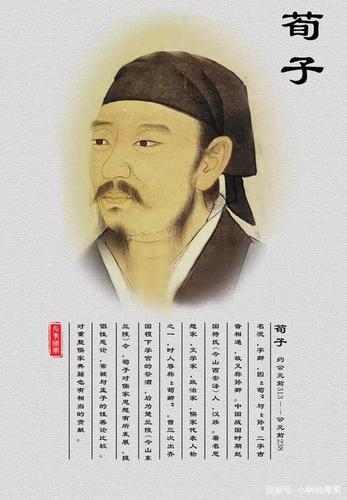 荀子
荀子 约公元前313——公元前238
名况，字卿，因“荀”与“孙”二字古
音相通，故又称孙卿。中国战国时期赵
国猗氏（今山西安泽）人，汉族。著名思
想家，文学家，政治家，儒家代表人物
之一，时人尊称“荀卿”。曾三次出齐
国稷下学宫的祭酒，后为楚兰陵（今山东
兰陵）令。荀子对儒家思想有所发展，提
倡性恶论，常被与孟子的性善论比较。
对重整儒家典籍也有相当的贡献。
百家号/小刚说厚黑